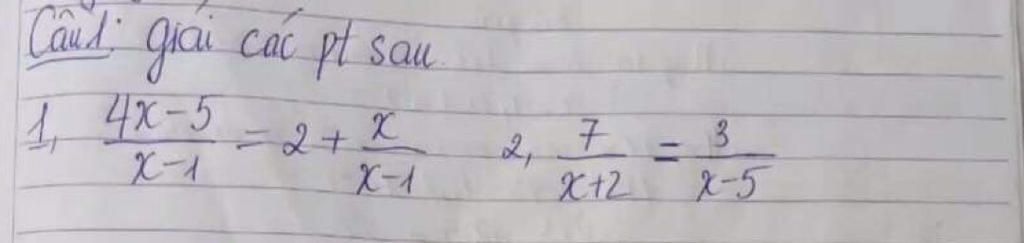 Câu1: giải các pt sau
1, \frac{4x-5}{x-1} = 2 + \frac{x}{x-1}    2, \frac{7}{x+2} = \frac{3}{x-5}